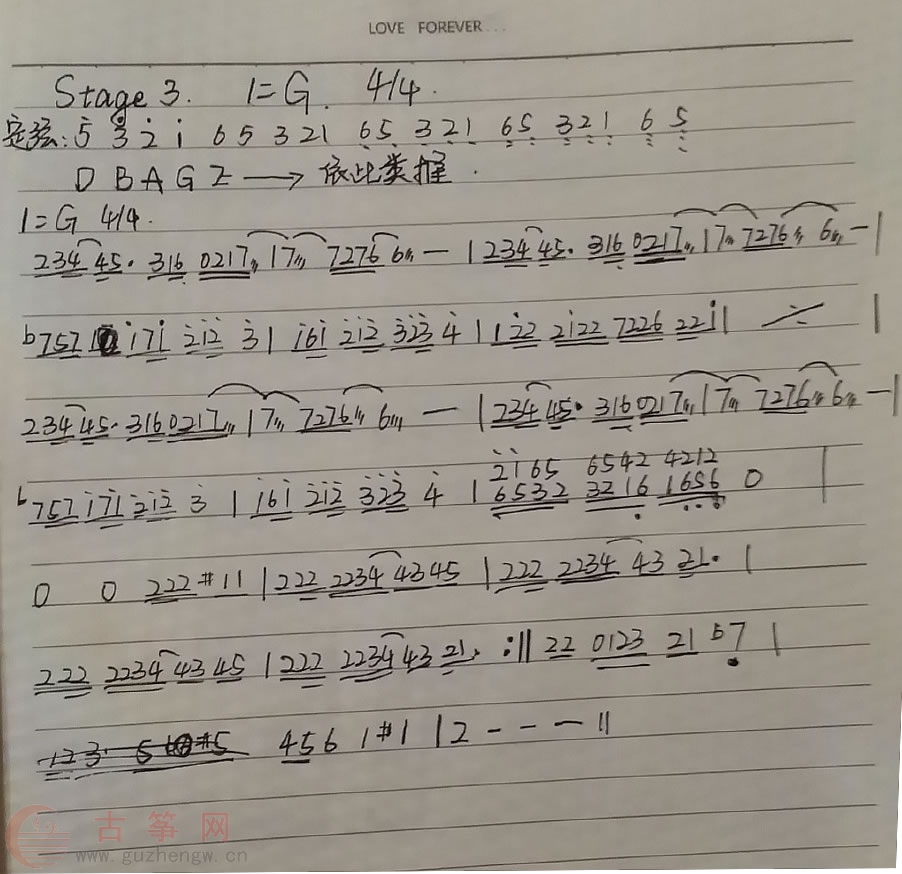 LOVE FOREVER...
Stage 3. 1=G. 4/4.
定弦: 5 3 2 1 6 5 3 2 1 6 5 3 2 1 6 5 3 2 1 6 5
D B A G E → 依此类推.
1=G 4/4.
234 45. 316 0217 | 17 7276 6 — | 234 45. 316 0217 | 17 7276 6 — |
b757 171 212 3 | 161 212 323 4 | 122 2122 7226 221 | ⁒ |
234 45. 316 0217 | 17 7276 6 — | 234 45. 316 0217 | 17 7276 6 — |
2165 6542 4212
b757 171 212 3 | 161 212 323 4 | 6532 3216 1656 0 |
0 0 222 #11 | 222 2234 4345 | 222 2234 43 21. |
222 2234 43 45 | 222 2234 43 21. :|| 22 0123 21 b7 |
456 1#1 | 2 - - - ||
古筝网
www.guzhengw.cn